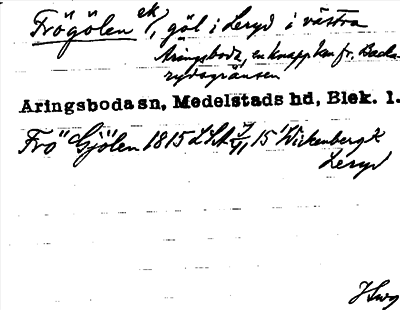 Frögölen ek/, göl i Leryd i västra
Aringsboda, en knapp km fr. Backa-
rydsgränsen
Aringsboda sn, Medelstads hd, Blek. l.
Frö Gjölen 1815 LSA 7/11 15 Wickenberg K
Leryd